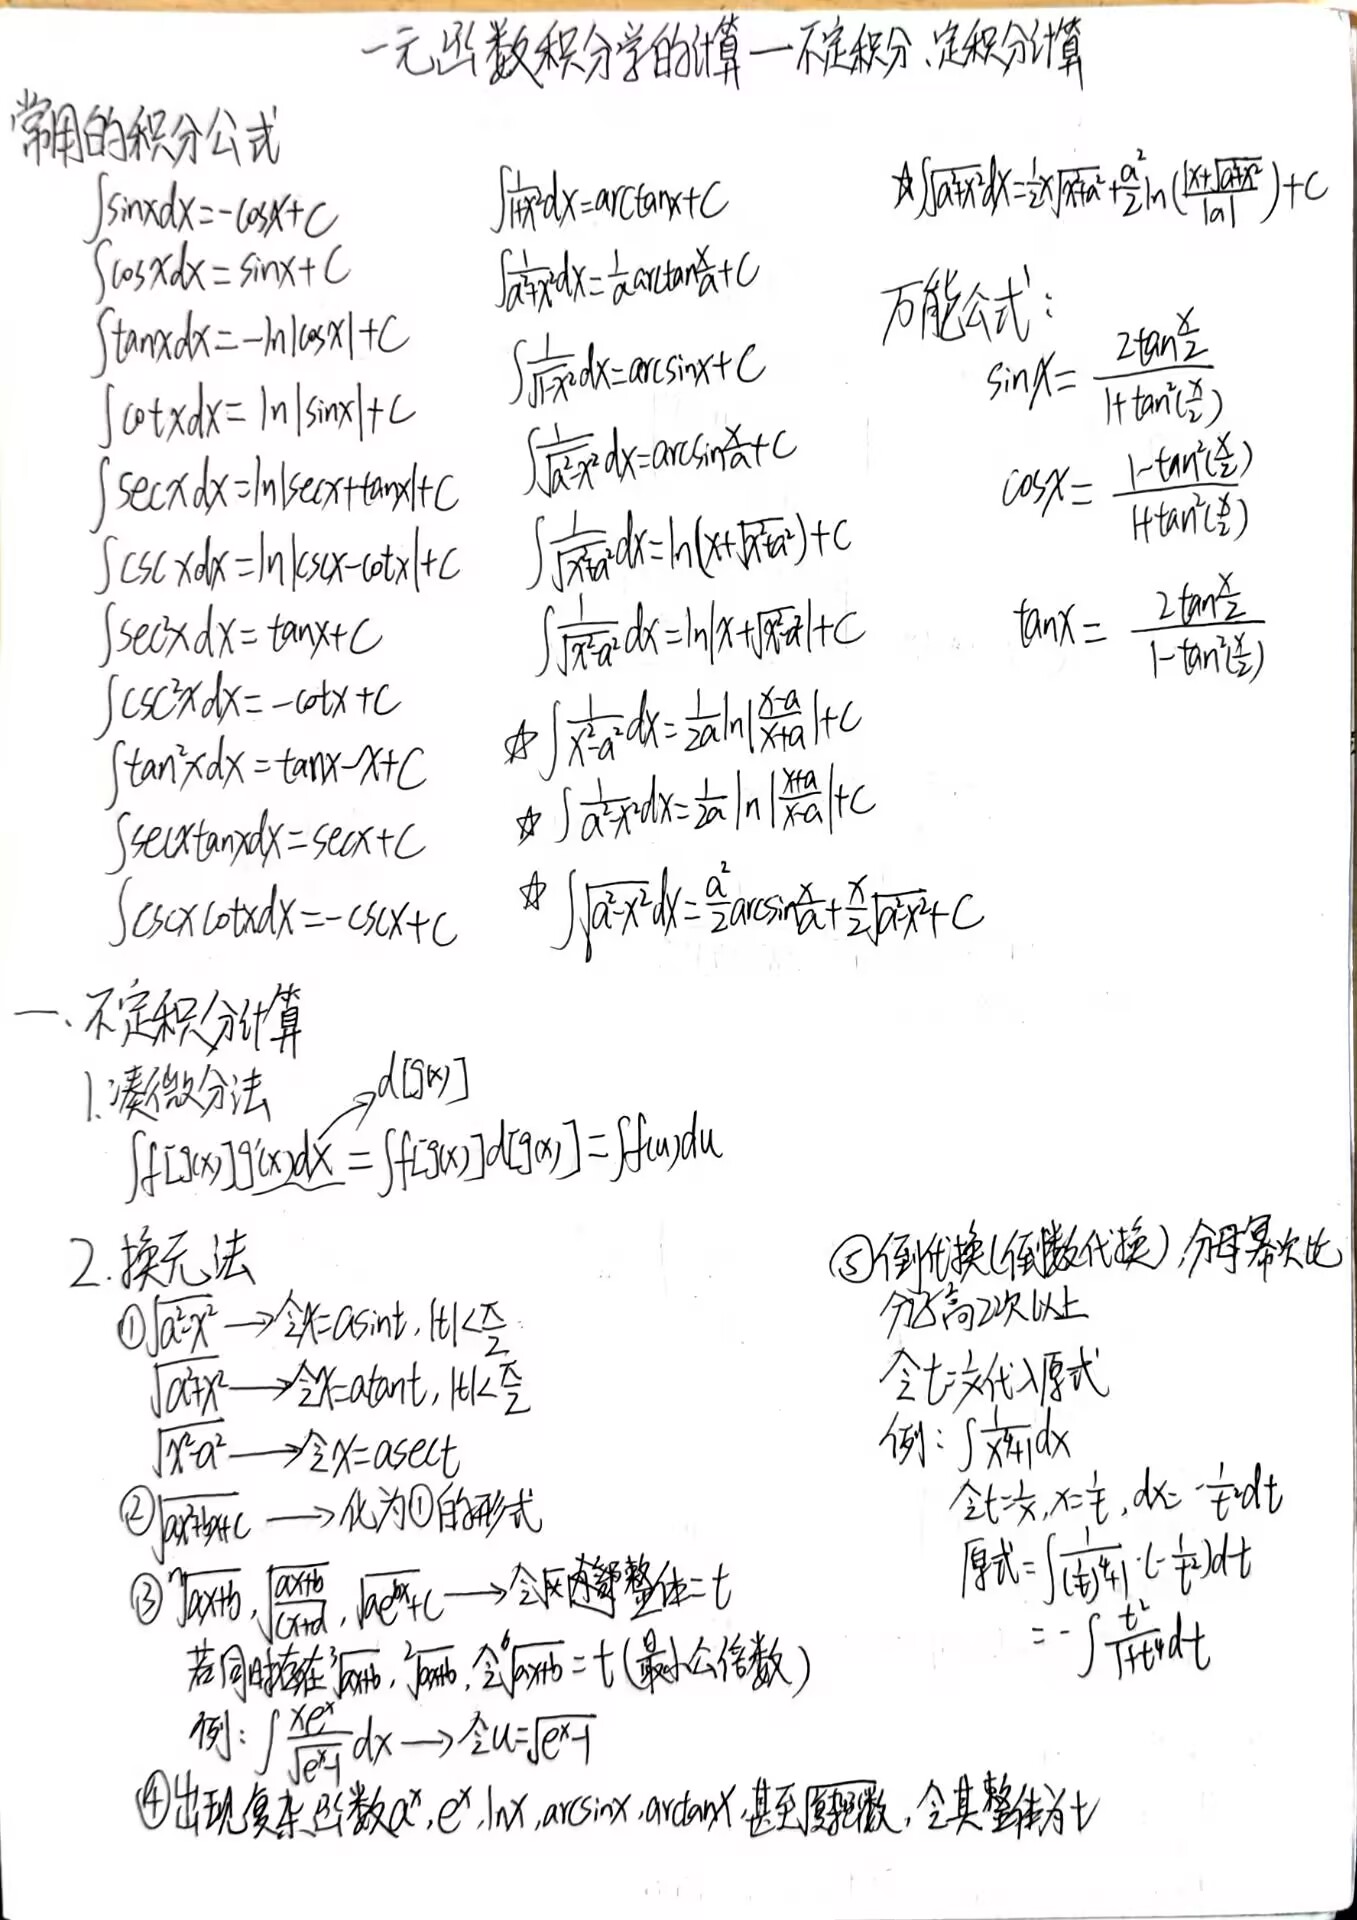 一元函数积分学的计算—不定积分、定积分计算
常用的积分公式
∫sinxdx=-cosx+C
∫cosxdx=sinx+C
∫tanxdx=-ln|cosx|+C
∫cotxdx=ln|sinx|+C
∫secxdx=ln|secx+tanx|+C
∫cscxdx=ln|cscx-cotx|+C
∫sec²xdx=tanx+C
∫csc²xdx=-cotx+C
∫tan²xdx=tanx-x+C
∫secxtanxdx=secx+C
∫cscxcotxdx=-cscx+C
∫1/(1+x²)dx=arctanx+C
∫1/(a²+x²)dx=1/a arctan x/a+C
∫1/√(1-x²)dx=arcsinx+C
∫1/√(a²-x²)dx=arcsin x/a+C
∫1/√(x²+a²)dx=ln(x+√(x²+a²))+C
∫1/√(x²-a²)dx=ln|x+√(x²-a²)|+C
☆∫1/(x²-a²)dx=1/2a ln|(x-a)/(x+a)|+C
☆∫1/(a²-x²)dx=1/2a ln|(x+a)/(x-a)|+C
☆∫√(a²-x²)dx=a²/2 arcsin x/a+x/2 √(a²-x²)+C
☆∫√(a²+x²)dx=1/2 x√(x²+a²)+a²/2 ln(|x+√(a²+x²)|/|a|)+C
万能公式:
sinx=2tan x/2 / (1+tan²(x/2))
cosx=(1-tan²(x/2)) / (1+tan²(x/2))
tanx=2tan x/2 / (1-tan²(x/2))
一、不定积分计算
1.凑微分法
d[g(x)]
∫f[g(x)]g'(x)dx=∫f[g(x)]d[g(x)]=∫f(u)du
2.换元法
①√(a²-x²)→令x=asint,|t|<π/2
√(a²+x²)→令x=atant,|t|<π/2
√(x²-a²)→令x=asect
②√(ax²+bx+c)→化为①的形式
③ⁿ√(ax+b),√((ax+b)/(cx+d)),√(ae^(bx)+c)→令整体=t
若同时存在³√(ax+b),²√(ax+b),令⁶√(ax+b)=t(最小公倍数)
例:∫xeˣ/√(eˣ-1) dx→令u=√(eˣ-1)
④出现复杂函数aˣ,eˣ,lnx,arcsinx,arctanx,甚至,令其整体为t
⑤倒代换(倒数代换),分母幂次比
分子高2次以上
令t=1/x代入原式
例:∫1/(x⁴+1)dx
令t=1/x,x=1/t,dx=-1/t²dt
原式=∫1/((1/t)⁴+1)·(-1/t²)dt
=-∫t²/(1+t⁴)dt